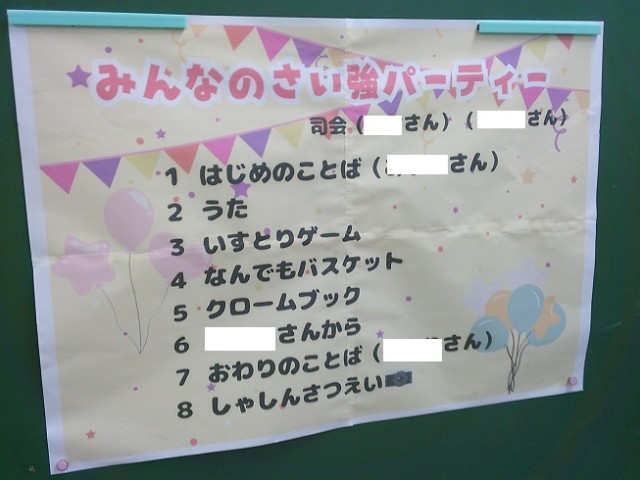 みんなのさい強パーティー
司会（　　さん）（　　さん）
1 はじめのことば（　　さん）
2 うた
3 いすとりゲーム
4 なんでもバスケット
5 クロームブック
6 　　さんから
7 おわりのことば（　　さん）
8 しゃしんさつえい